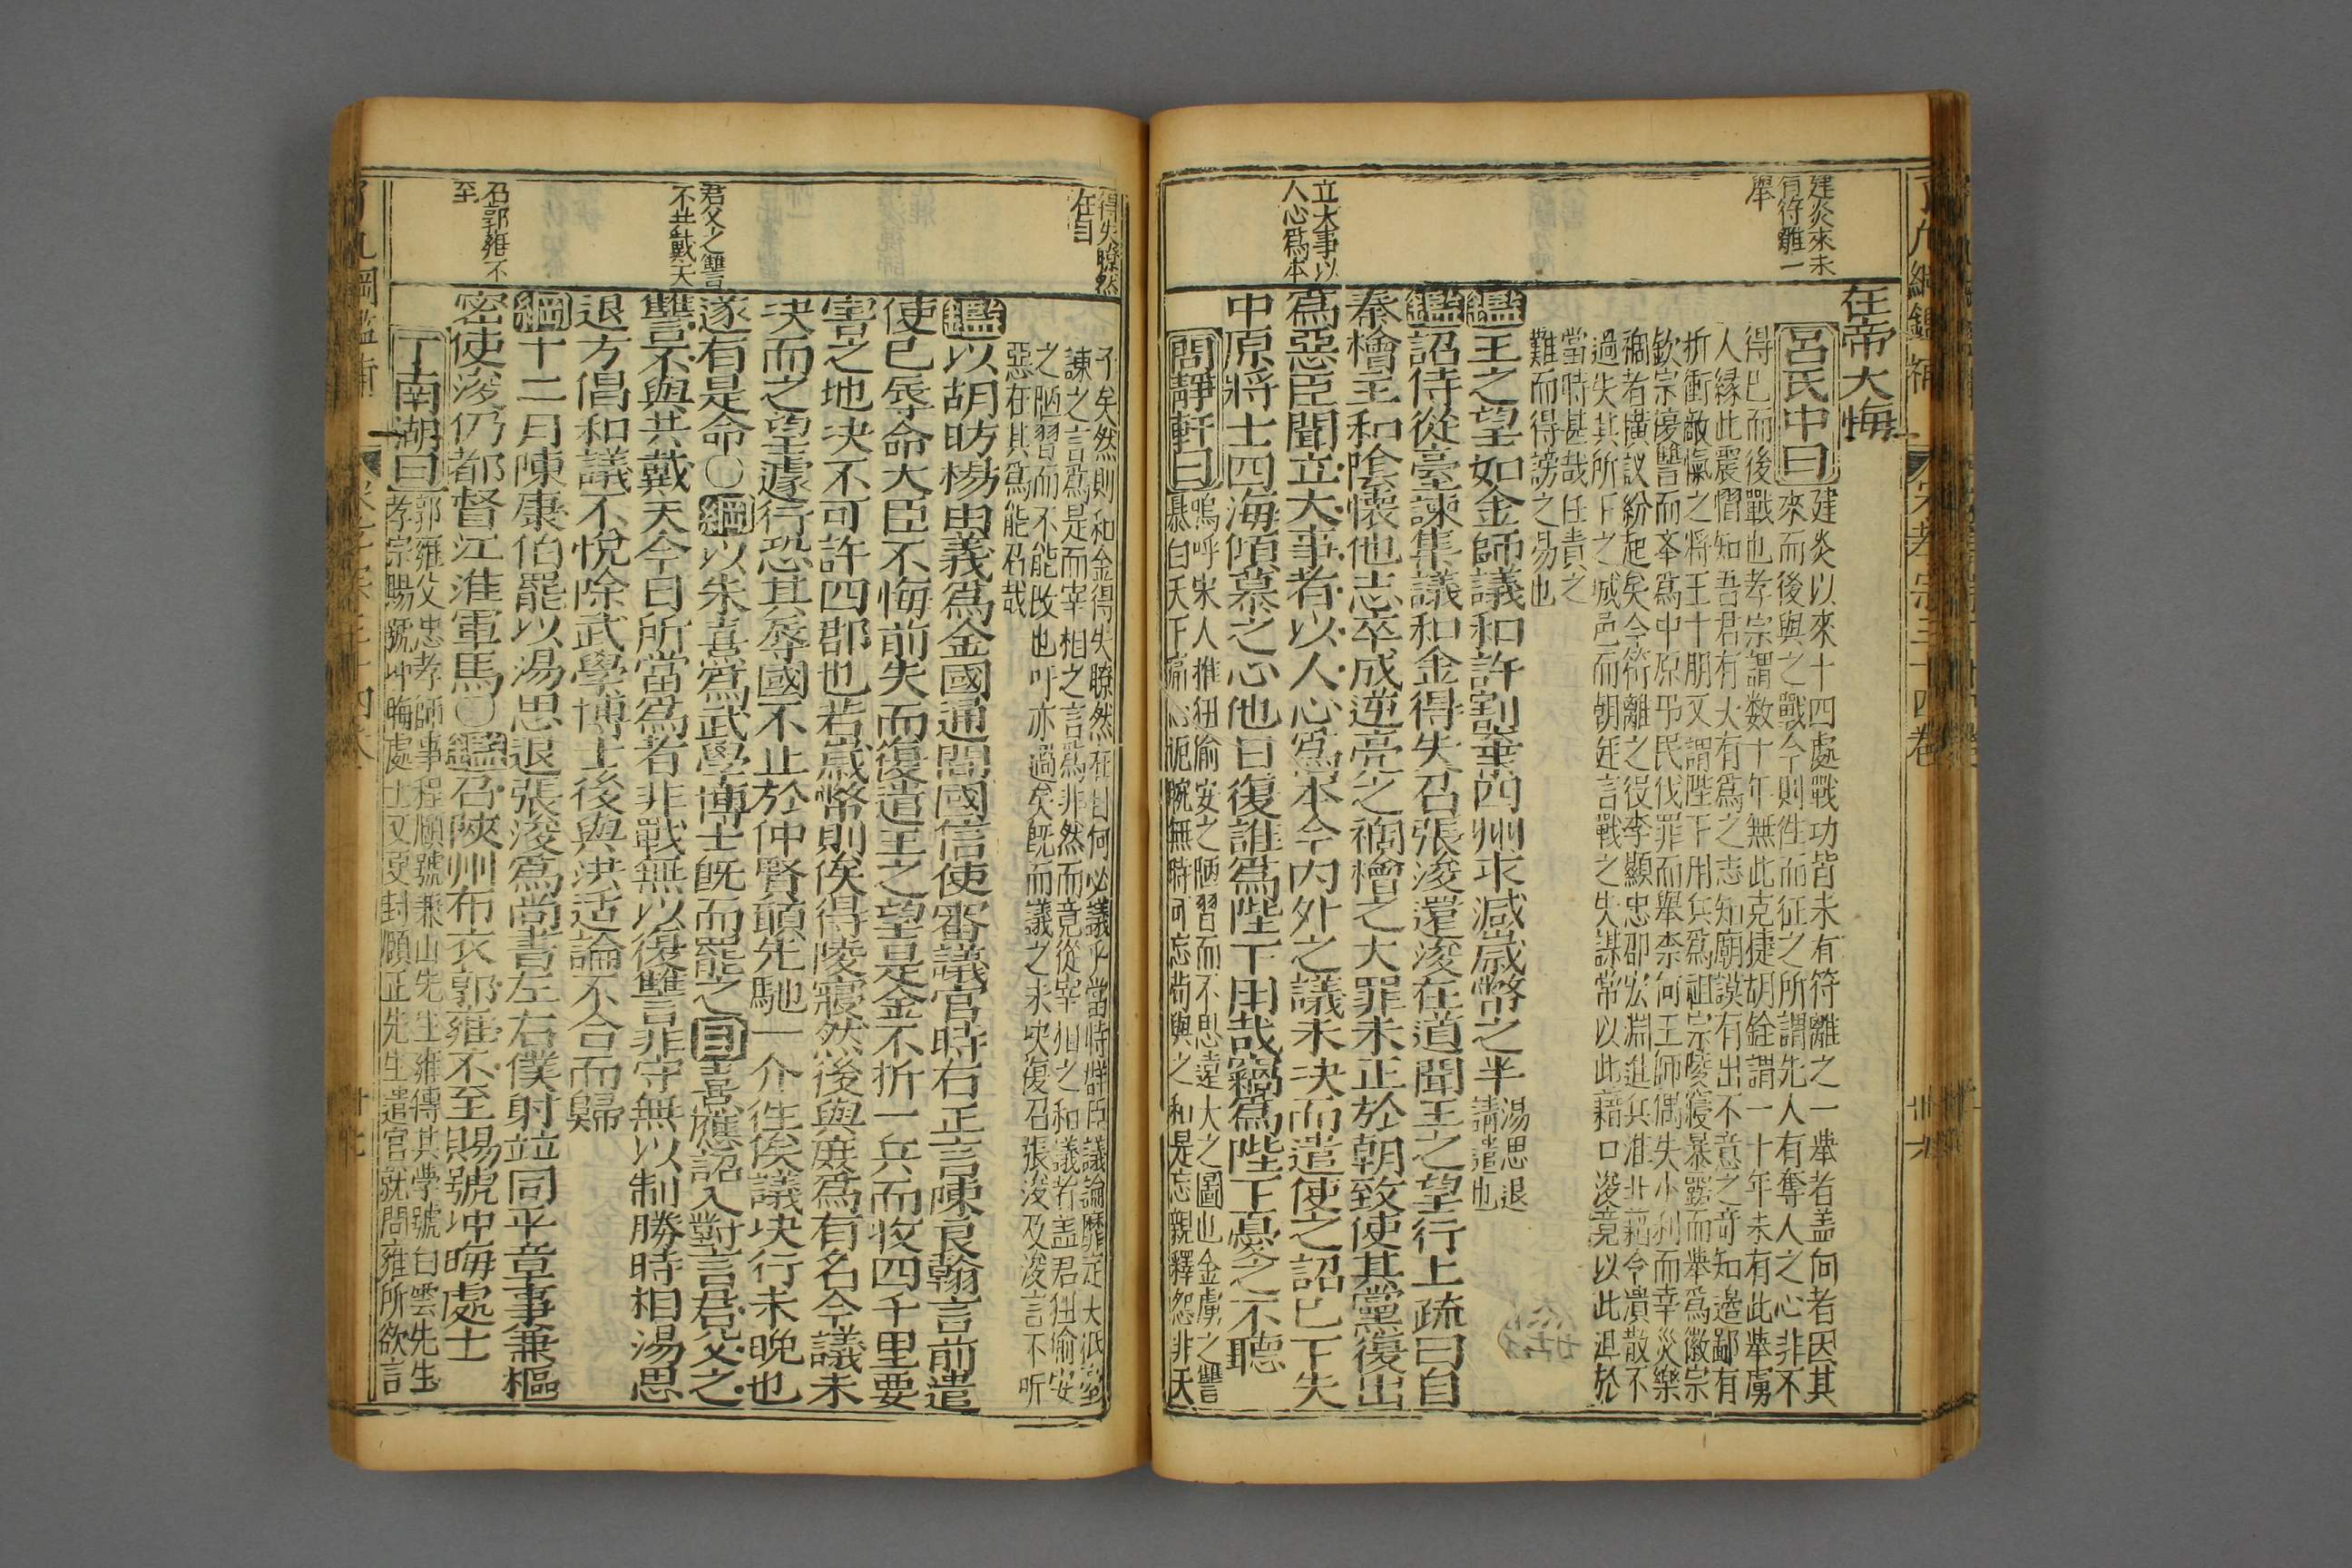 建炎來未
有符離一
舉
在帝大悔
呂氏中曰
建炎以來十四處戰功皆未有符離之一舉者盖向者因其
來而後與之戰今則徃而征之所謂先人有奪人之心非不
得已而後戰也孝宗謂数十年無此克捷胡銓謂一十年未有此舉虜
人緣此震慴知吾君有大有爲之志知廟謨有出不意之竒知邉鄙有
折衝敵愾之將王十朋又謂陛下用兵爲祖宗陵寢暴露而舉爲徽宗
欽宗復讐而舉爲中原弔民伐罪而舉柰何王師偶失小利而幸災樂
禍者横議紛起矣今符離之役李顯忠邵宏淵進兵淮北藉令潰散不
過失其所下之城邑而朝廷言戰之失謀常以此藉口浚竟以此沮於
當時甚哉任責之
難而得謗之易也
鑑王之望如金師議和許割棄四州求減嵗幣之半
湯思退
請遣也
鑑詔侍從臺諫集議和金得失召張浚還浚在道聞王之望行上疏曰自
秦檜主和陰懷他志卒成逆亮之禍檜之大罪未正於朝致使其黨復出
爲惡臣聞立大事者以人心爲本今内外之議未决而遣使之詔已下失
立大事以
人心爲本
中原將士四海傾慕之心他日復誰爲陛下用哉竊爲陛下憂之不聽
周靜軒曰
嗚呼宋人推狃偷安之陋習而不思遠大之圖也金虜之讐
愚白天下痛心扼腕無時可忘尚與之和是忘親釋怨非天
得失瞭然
在目
子矣然則和金得失瞭然在目何必議乎當時群臣議論靡定大扺臺
諫之言爲是而宰相之言爲非然而竟從宰相之和議者盖君狃偷安
之陋習而不能改也吁亦過矣旣而議之未决復召張浚及浚言不听
惡在其爲能召哉
鑑以胡昉楊由義爲金國通問國信使審議官時右正言陳良翰言前遣
使已辱命大臣不悔前失而復遣王之望是金不折一兵而收四千里要
害之地决不可許四郡也若嵗幣則俟得陵寢然後與庶爲有名今議未
决而之望遽行恐其辱國不止於仲賢願先馳一介徃俟議块行未晩也
遂有是命〇綱以朱熹爲武學博士旣而罷之目熹應詔入對言君父之
君父之讐
不共戴天
讐不與共戴天今日所當爲者非戰無以復讐非守無以制勝時相湯思
退方倡和議不悅除武學博士後與洪适論不合而歸
綱十二月陳康伯罷以湯思退張浚爲尚書左右僕射竝同平章事兼樞
密使浚仍都督江淮軍馬〇鑑召陝州布衣郭雍不至賜號冲晦處士
召郭雍不
至
丁南湖曰
郭雍父忠孝師事程頤號兼山先生雍傳其學號白雲先生
孝宗賜號冲晦處士又更封頤正先生遣官就問雍所欲言